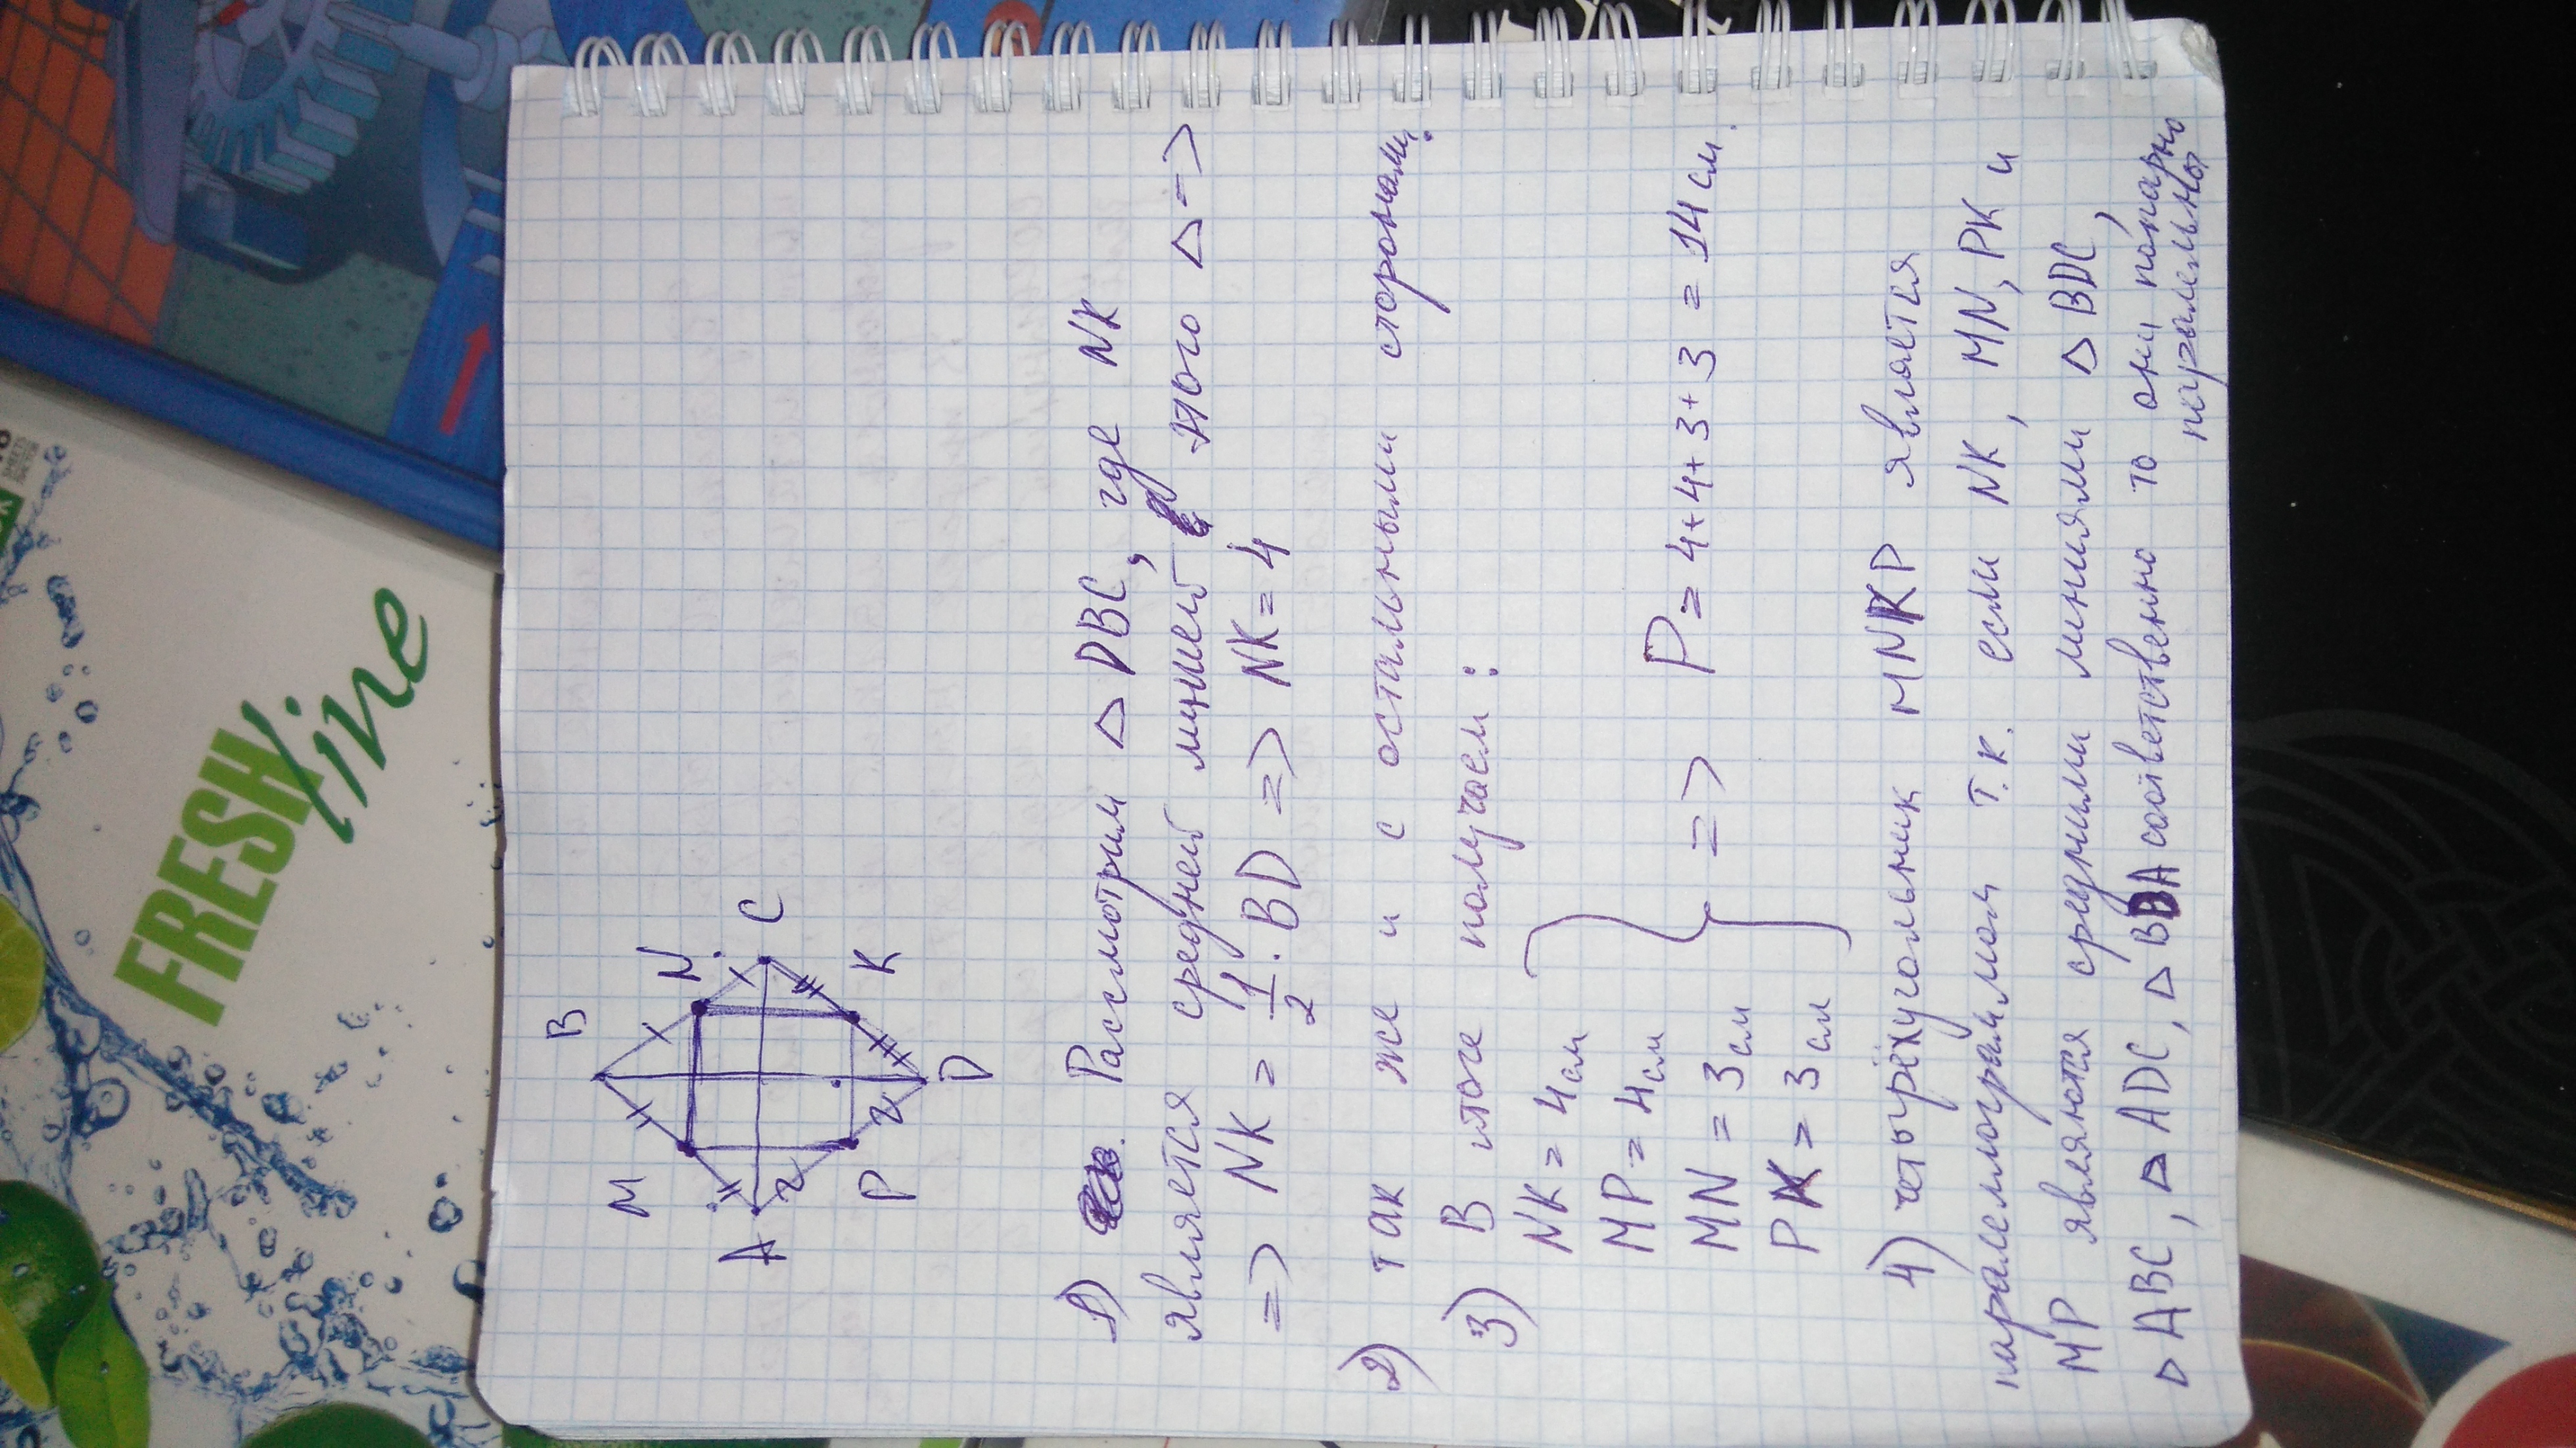 B
M
N
A
C
P
K
D
1) Рассмотрим △ DBC, где NK
является средней линией этого △ =>
=> NK = 1/2 · BD => NK = 4
2) так же и с остальными сторонами.
3) В итоге получаем:
NK = 4см
MP = 4см
MN = 3см
PK = 3см
=> P = 4+4+3+3 = 14см.
4) четырёхугольник MNKP является
параллелограммом т.к. если NK, MN, PK и
MP являются средними линиями △ BDC,
△ ABC, △ ADC, △ BDA соответственно то они попарно
паралельны
FRESH
line